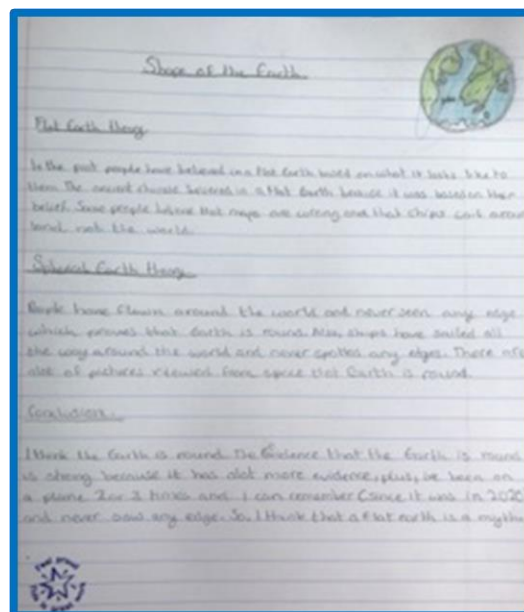 Shape of the Earth
Flat Earth theory
In the past people have believed in a flat Earth based on what it looks like to
them. The ancient chinese believed in a flat Earth because it was based on their
belief. Some people believe that maps are wrong and that ships sail
land not the world.
Spherical Earth theory
People have flown around the world and never seen any edge
which proves that Earth is round. Also, ships have sailed all
the way around the world and never spotted any edges. There are
alot of pictures from space that Earth is round.
Conclusion.
I think the Earth is round. The Evidence that the Earth is round
is strong because it has alot more evidence, plus, been on
a plane 2 or 3 times and I can remember (since it was in 2020
and never saw any edge. So, I think that a flat earth is a myth